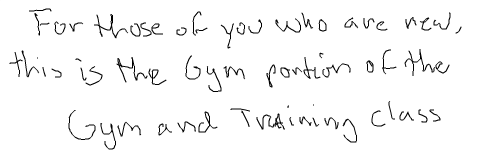 For those of you who are new,
this is the Gym portion of the
Gym and Training class